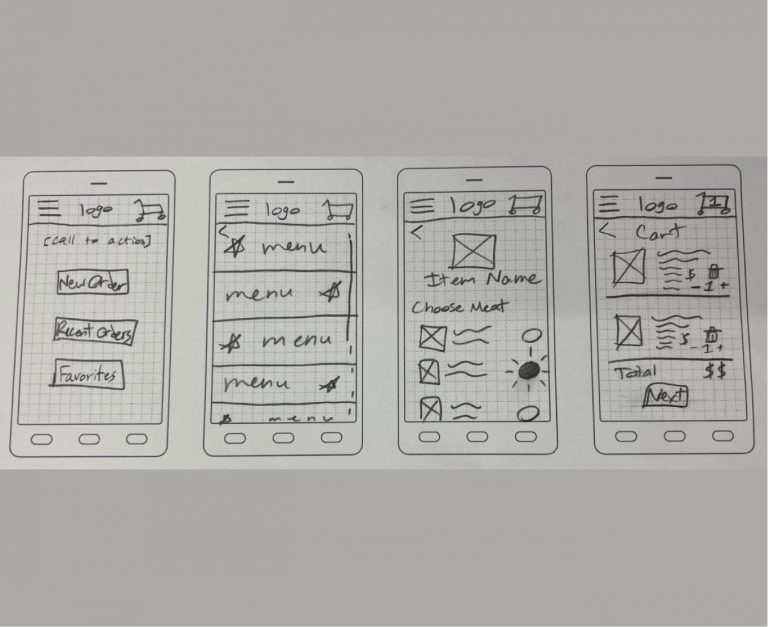 logo
[Call to action]
New Order
Recent Orders
Favorites
logo
<
menu
menu
menu
menu
menu
logo
<
Item Name
Choose Meat
logo
1
< Cart
$
- 1 +
$
- 1 +
Total $$
Next